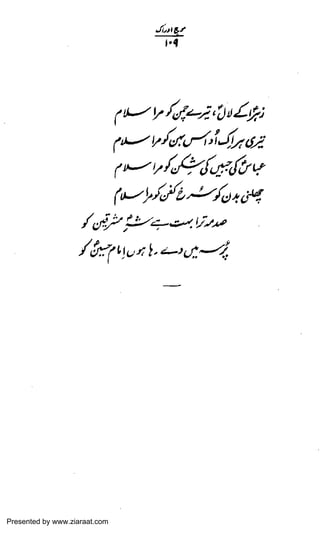 موجِ ادراک
۱۰۹
زہراؑ کے لال، تیرے چمن کو مرا سلام
تیری ہر اِک اُداس بہن کو مرا سلام
عباسؑ کی جبیں کی شکن کو مرا سلام
چھلنی بدن کو سُرخ کفن کو مرا سلام
صدمہ ترا بہت ہے شہِ مشرقین کو
پُرسہ میں دے رہا ہوں اِمام حسینؑ کو
Presented by www.ziaraat.com